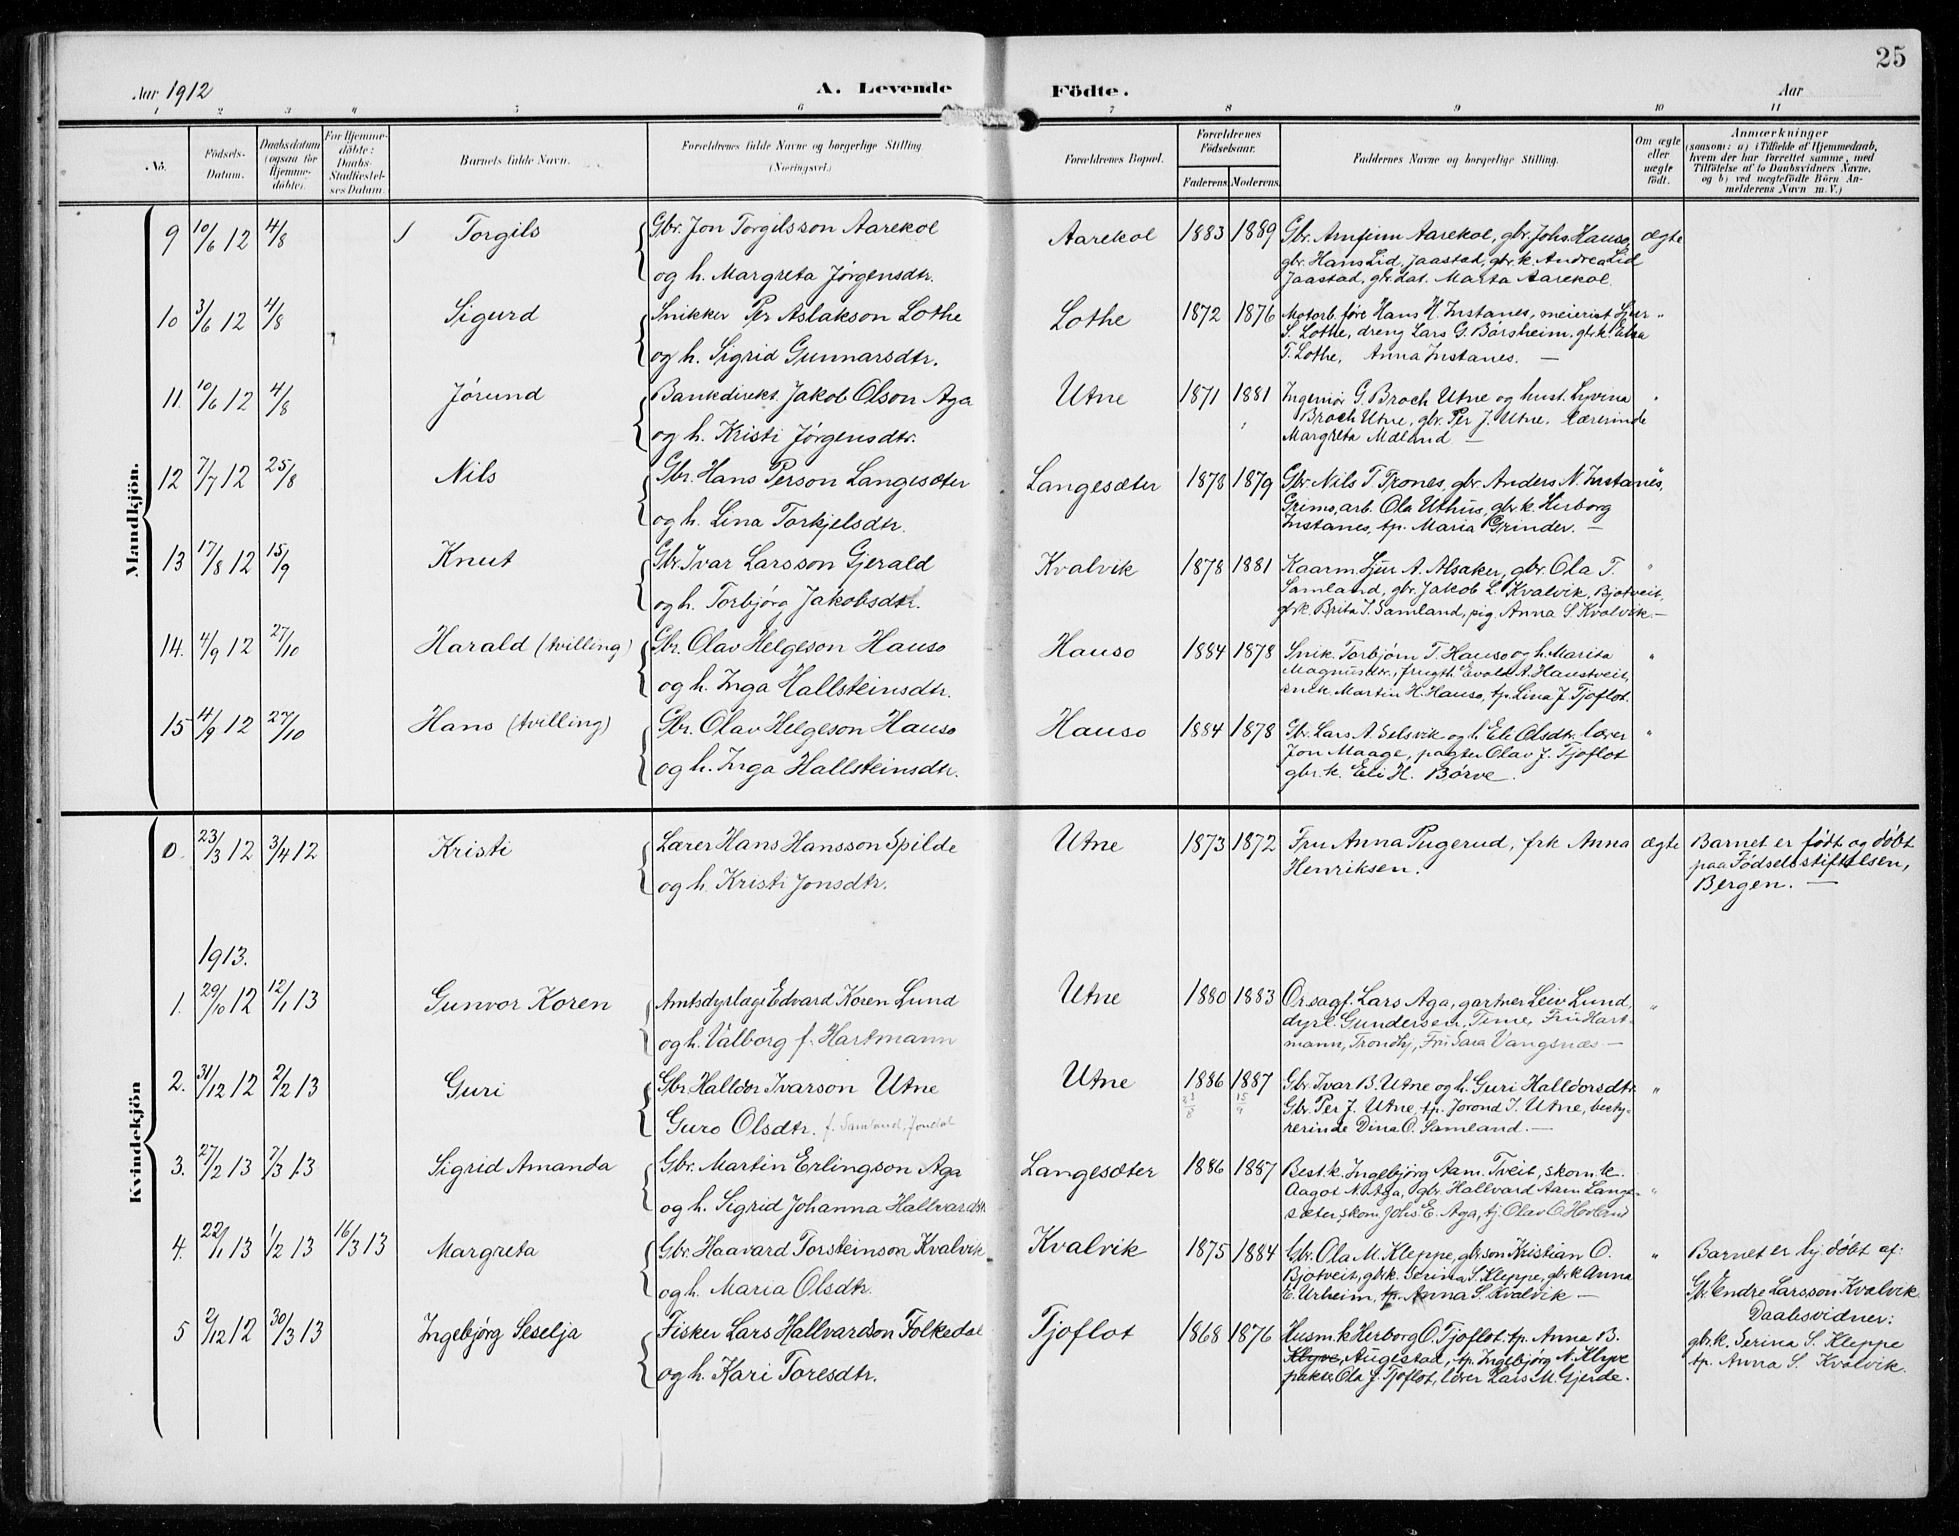 25
Aar 1912
A. Levende Födte.
Aar
1 2 3 4 5 6 7 8 9 10 11
No.
Födsels-Datum.
Daabsdatum (ogsaa for Hjemme-döbte).
For Hjemme-döbte: Daabs-Stadfæstel-ses Datum.
Barnets fulde Navn.
Forældrenes fulde Navne og borgerlige Stilling. (Næringsvei.)
Forældrenes Bopæl.
Forældrenes Födselsaar.
Faderens. Moderens.
Faddernes Navne og borgerlige Stilling.
Om ægte eller uægte födt.
Anmærkninger
(saasom: a) i Tilfælde af Hjemmedaab,
hvem der har forrettet samme, med
Tilföielse af to Daabsvidners Navne,
og b) ved uægtefödte Börn An-
melderens Navn m. V.)
Mandkjön.
9 10/6 12 4/8 Torgils Gbr. Jon Torgilsson Aarekol Aarekol 1883 1889 Gbr. Arnfinn Aarekol, gbr. Johs. Hauso, ægte
gbr. Hans Lid, Jaastad, gbr. k. Andrea Lid
og h. Margreta Jørgensdtr. Jaastad, gbr. dat. Marta Aarekol.
10 3/6 12 4/8 Sigurd Snikker Per Aslakson Lothe Lothe 1872 1876 Motorb. före Hans H. Instanes, meierist Sjur "
S. Lothe, dreng Lars G. Børsheim, gbr. k. Elsa
og h. Sigrid Gunnarsdtr. T. Lothe, Anna Instanes. —
11. 10/6 12 4/8 Jørund Bankdirekt. Jakob Olson Aga Utne 1871 1881 Ingeniør G. Broch Utne og hust. Lyvina "
Broch Utne, gbr. Per J. Utne, lærerinde
og h. Kristi Jørgensdtr. Margreta Mæland —
12 7/7 12 25/8 Nils Gbr. Hans Person Langesæter Langesæter 1878 1879 Gbr. Nils T. Trones, gbr. Anders N. Instanes, "
Grimo, arb. Ola Uthus, gbr. k. Herborg
og h. Lina Torkjelsdtr. Instanes, tp. Maria Grinder. —
13 17/8 12 15/9 Knut Gbr. Ivar Larsson Gjerald Kvalvik 1878 1881 Kaarm. Sjur A. Alsaker, gbr. Ola T. "
Samland, gbr. Jakob L. Kvalvik, Bjotveit,
og h. Torbjørg Jakobsdtr. gbr. k. Brita T. Samland, pig. Anna S. Kvalvik. —
14. 4/9 12 27/10 Harald (tvilling) Gbr. Olav Helgeson Hauso Hauso 1884 1878 Snik. Torbjørn T. Hauso og h. Marita "
Magnusdtr., frugth. Evald A. Haustveit,
og h. Inga Hallsteinsdtr. snik. Martin H. Hauso, tp. Lina J. Tjoflot.
15 4/9 12 27/10 Hans (tvilling) Gbr. Olav Helgeson Hauso Hauso 1884 1878 Gbr. Lars A. Selsvik og h. Eli Olsdtr. lærer "
Jon Maage, pagter Olav J. Tjoflot
og h. Inga Hallsteinsdtr. gbr. k. Eli H. Børve.
Kvindekjön
0. 23/3 12 3/4 12 Kristi Lærer Hans Hansson Spilde Utne 1873 1872 Fru Anna Pugerud, frk Anna ægte Barnet er født og døbt
og h. Kristi Jonsdtr. Henriksen. paa Fødselsstiftelsen,
Bergen. —
1913.
1. 29/10 12 12/1 13 Gunvor Koren Amtsdyrlæge Edvard Koren Lund Utne 1880 1883 O.r.sagf. Lars Aga, gartner Leiv Lund, "
dyrl. Gundersen, Time, Fru Hart-
og h. Valborg f. Hartmann mann, Trondhj, Fru Sara Vangsnæs —
2. 31/12 12 2/2 13 Guri Gbr. Halldor Ivarson Utne Utne 1886 1887 Gbr. Ivar B. Utne og h. Guri Halldorsdtr. "
23/8 15/9 Gbr. Per J. Utne, tp. Jorond I. Utne, besty-
Guro Olsdtr. f. Samland, Jondal rerinde Dina O. Samland. —
3. 27/2 13 7/3 13 Sigrid Amanda Gbr. Martin Erlingson Aga Langesæter 1886 1887 Best. k. Ingebjørg Aam. Tveit, skom. k.
Aagot N. Aga, gbr. Hallvard Aam. Lange- "
og h. Sigrid Johanna Hallvardsdtr sæter, skom. Johs. E. Aga, tj. Olav O. Hovland
4. 22/1 13 1/2 13 16/3 13 Margreta Gbr. Haavard Torsteinson Kvalvik Kvalvik 1875 1884 Gbr. Ola M. Kleppe, gbr. son Kristian O. " Barnet er hj. døbt af:
Bjotveit, gbr. k. Serina S. Kleppe, gbr. k Anna Gbr. Endre Larsson Kvalvik.
og h. Maria Olsdtr. E. Urheim, tp. Anna S. Kvalvik — Daabsvidner:
5 2/12 12 30/3 13 Ingebjørg Seselja Fisker Lars Hallvardson Folkedal Tjoflot 1868 1876 Husm. k Herborg O. Tjoflot. tp. Anna B. gbr. k. Serina S. Kleppe
Klyve, Augestad, tp. Ingebjørg N. Klyve tp. Anna S. Kvalvik.
og h. Kari Toresdtr. Ola J. Tjoflot, lærer Lars M. Gjerde.